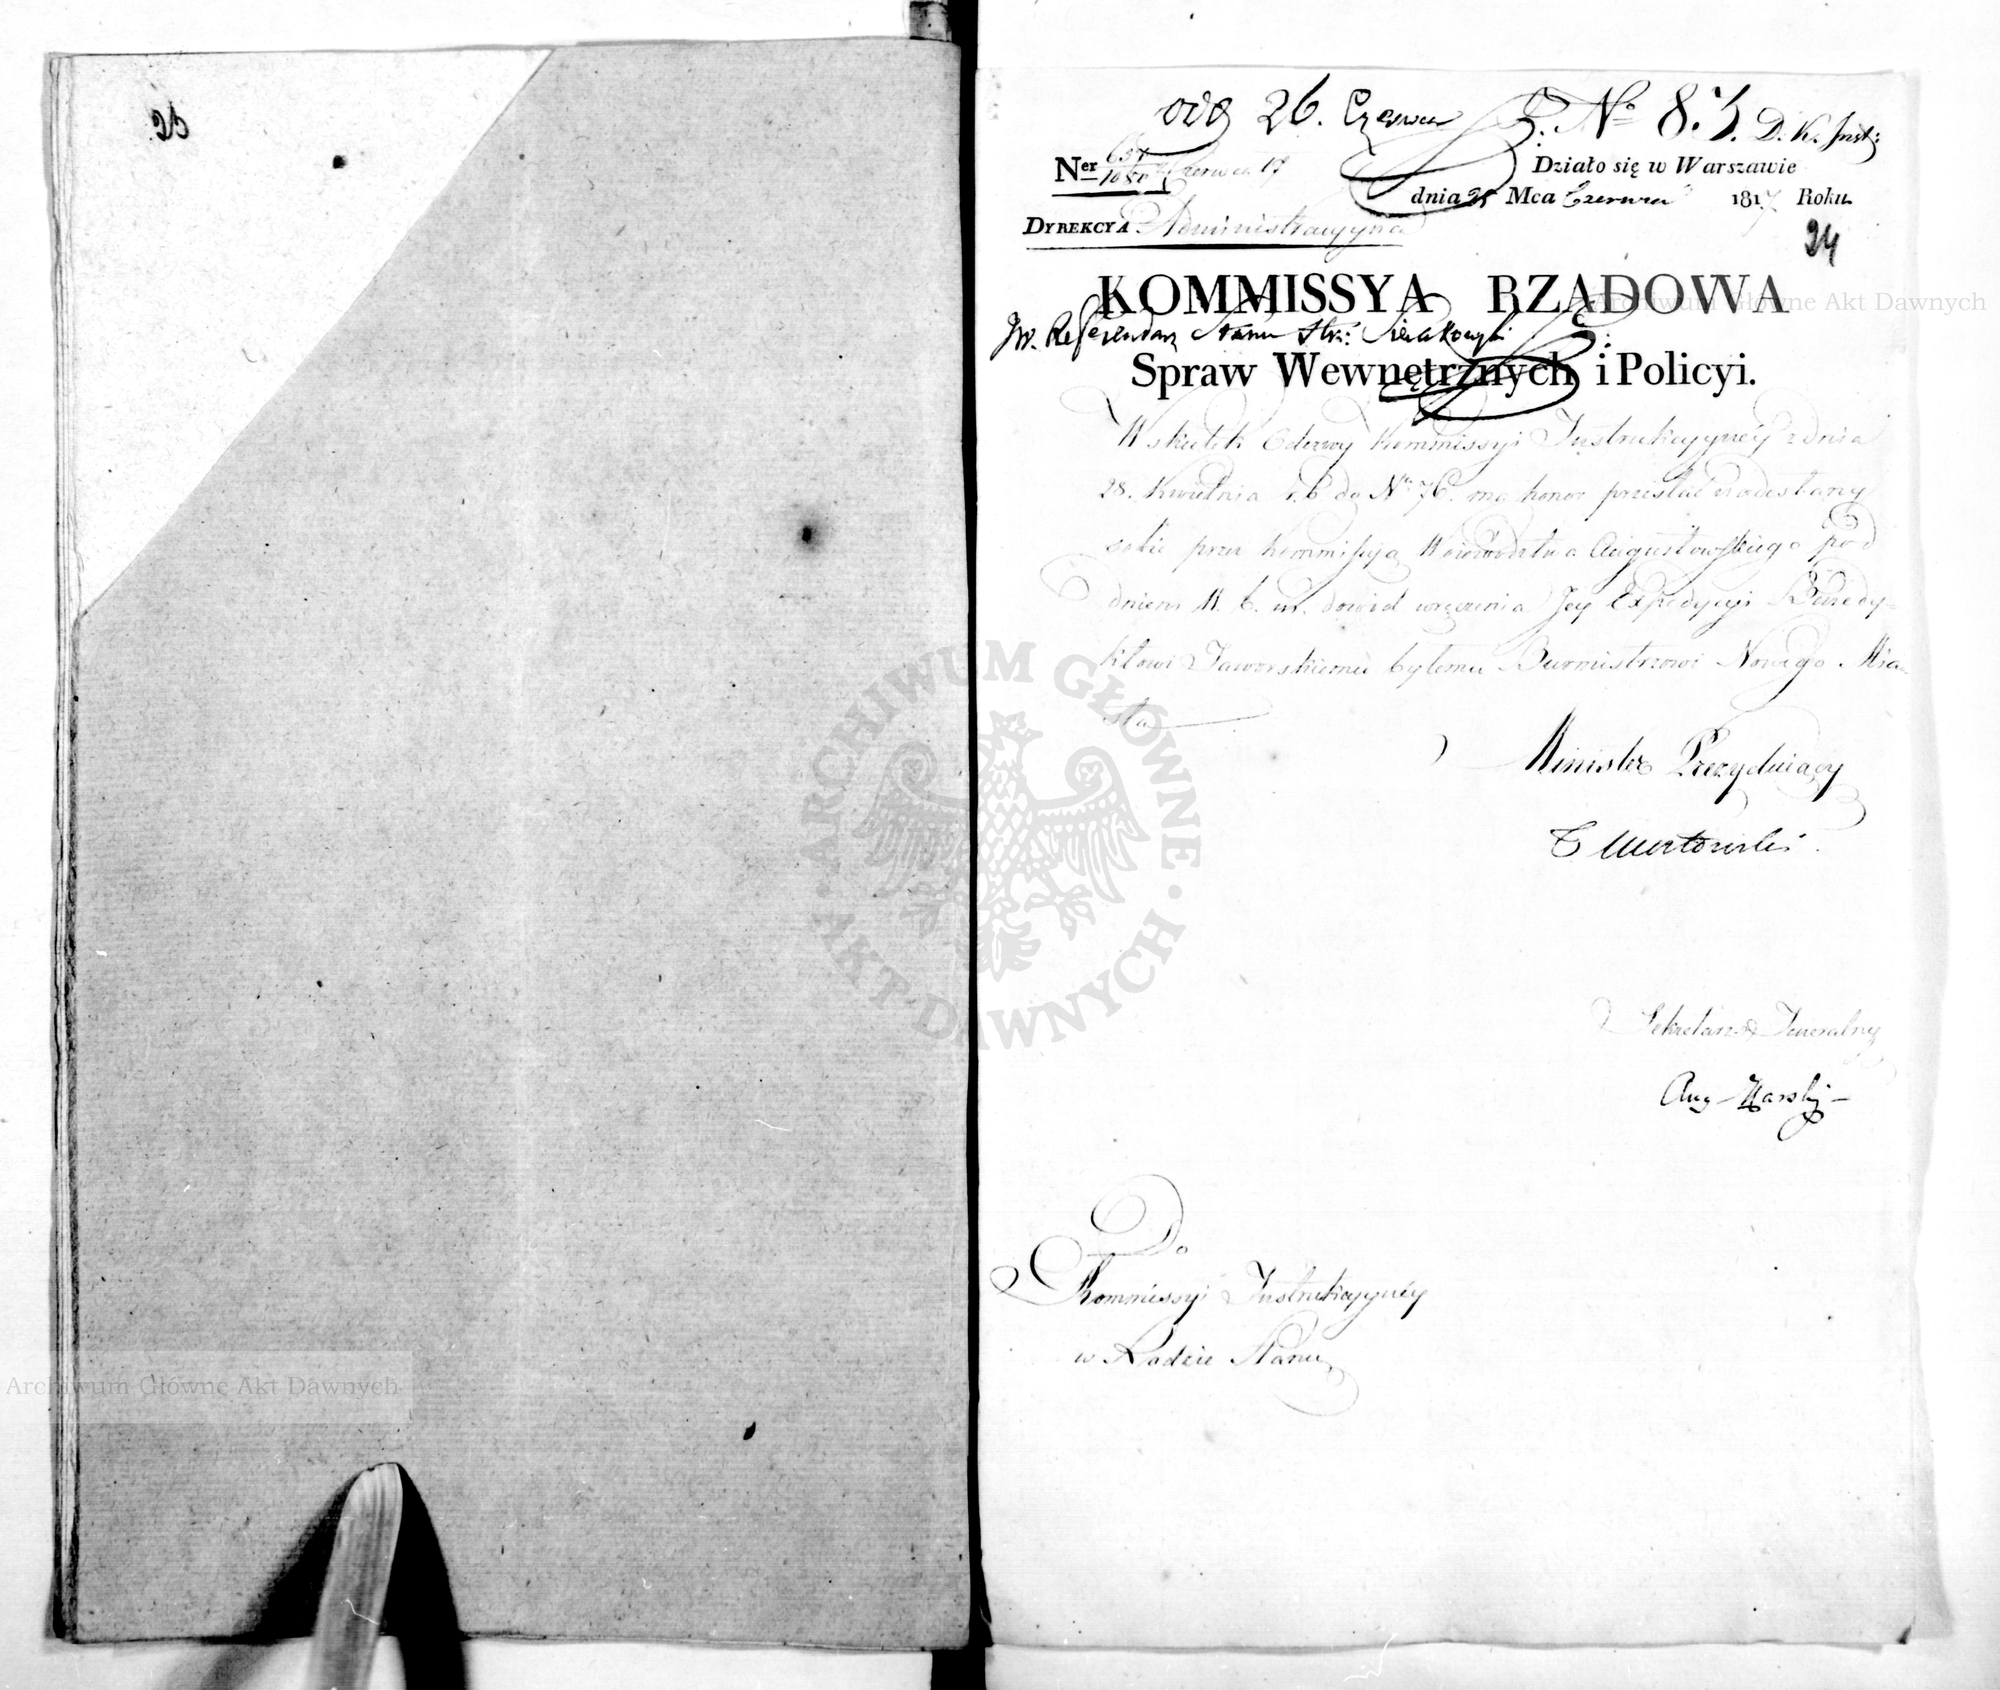 26
dd 26. Czerwca N° 83. D. K. Inst:
Ner 657/1080 Czerwca 17
Działo się w Warszawie
dnia 25 Mca Czerwca 1817 Roku
DYREKCYA Administracyyna
24
KOMMISSYA RZĄDOWA
JW. Referendarz Stanu Sierakowski
Spraw Wewnętrznych i Policyi.
W skutek Odezwy Kommissyi Instrukcyyney z dnia
28. Kwietnia r. b do N° 76. ma honor przesłać nadesłany
sobie przez Kommissyą Woiewództwa Augustowskiego pod
dniem 11. b. m. dowód wręczenia Jey Expedycyi Benedy-
ktowi Jaworskiemu byłemu Burmistrzowi Nowego Mia-
sta
Minister Prezyduiący
T Mostowski
Sekretarz Jeneralny
Aug Karski
Do
Kommissyi Instrukcyyney
w Radzie Stanu
Archiwum Główne Akt Dawnych
Archiwum Główne Akt Dawnych
ARCHIWUM GŁÓWNE · AKT DAWNYCH ·